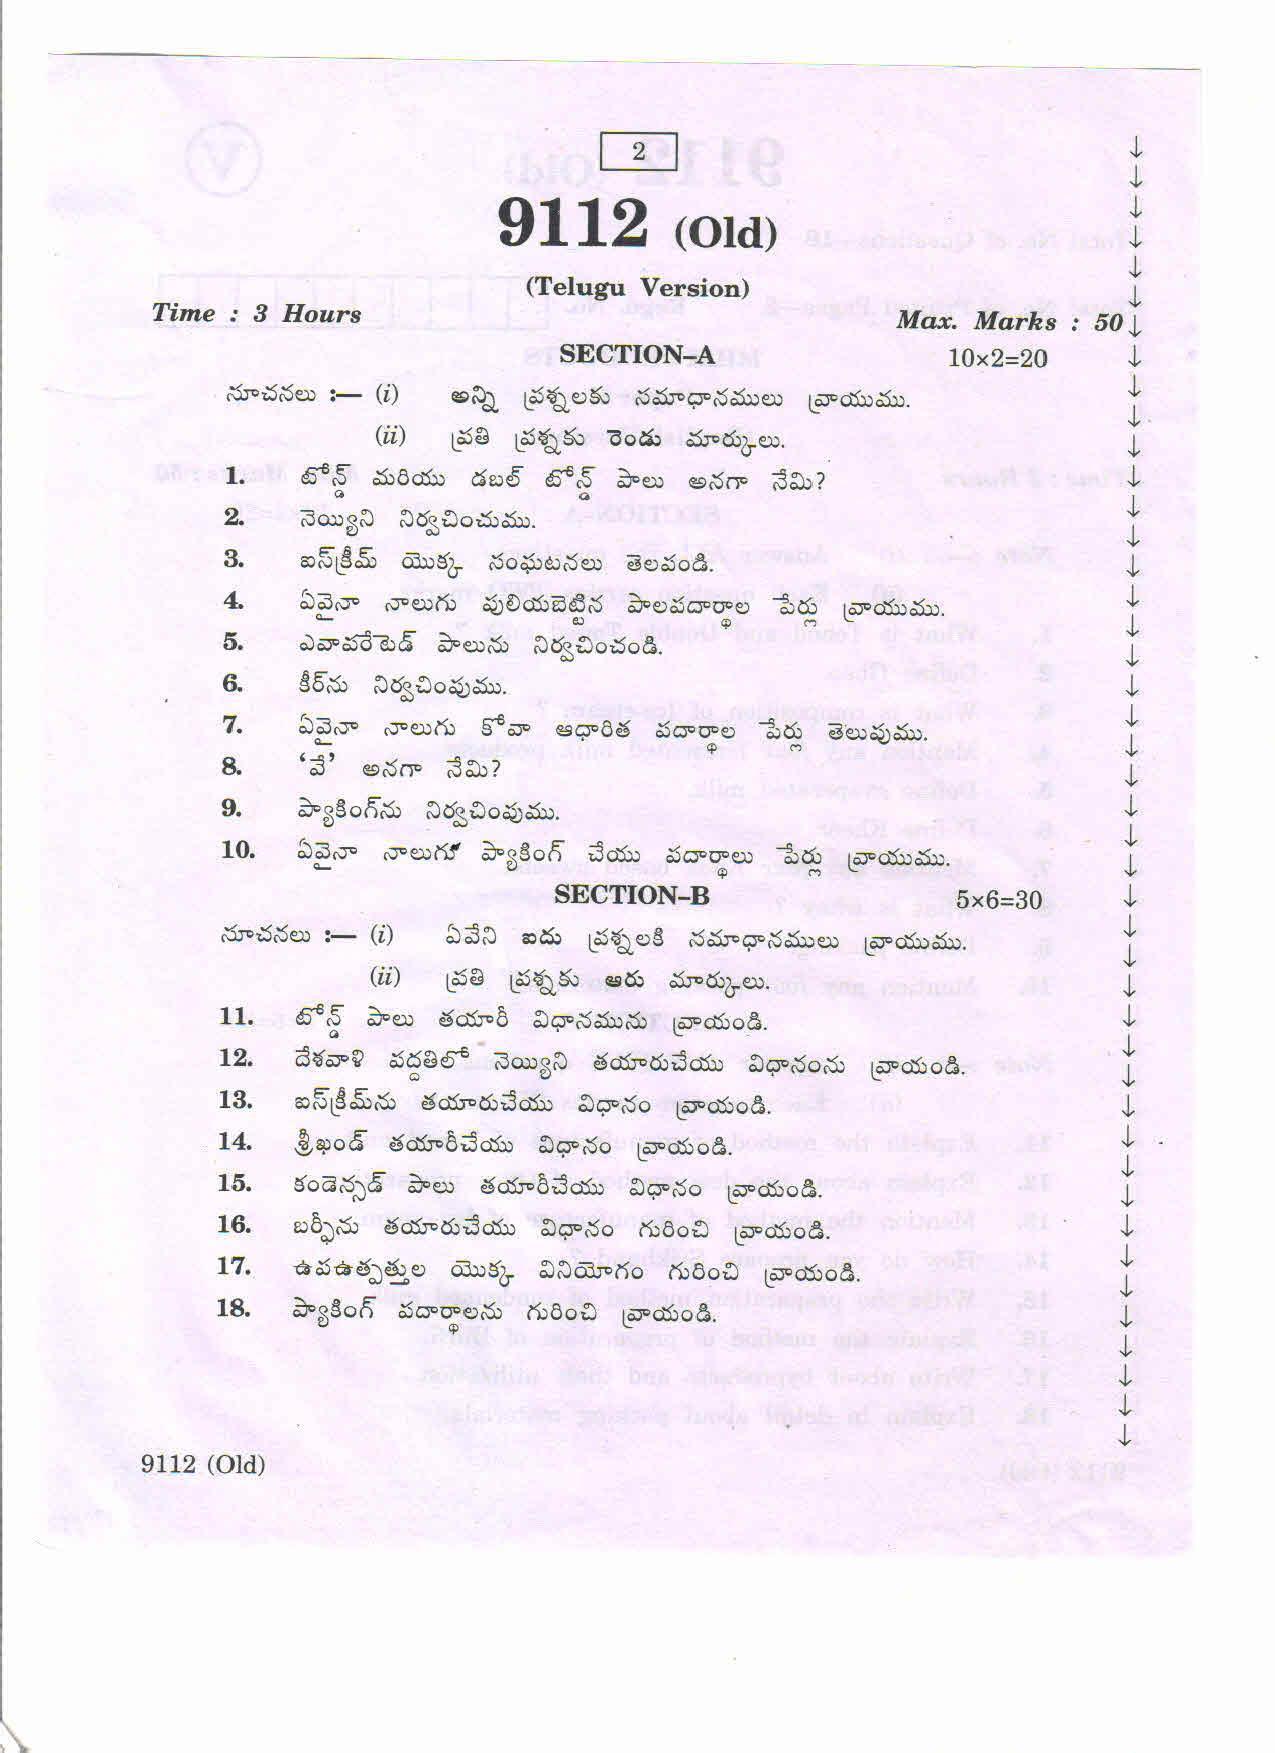 2
9112 (Old)
(Telugu Version)
Time : 3 Hours
Max. Marks : 50
SECTION–A 10×2=20
సూచనలు :— (i) అన్ని ప్రశ్నలకు సమాధానములు వ్రాయుము.
(ii) ప్రతి ప్రశ్నకు రెండు మార్కులు.
1. టోన్డ్ మరియు డబల్ టోన్డ్ పాలు అనగా నేమి?
2. నెయ్యిని నిర్వచించుము.
3. ఐస్‌క్రీమ్ యొక్క సంఘటనలు తెలపండి.
4. ఏవైనా నాలుగు పులియబెట్టిన పాలపదార్థాల పేర్లు వ్రాయుము.
5. ఎవాపరేటెడ్ పాలును నిర్వచించండి.
6. కీర్‌ను నిర్వచింపుము.
7. ఏవైనా నాలుగు కోవా ఆధారిత పదార్థాల పేర్లు తెలుపుము.
8. ‘వే’ అనగా నేమి?
9. ప్యాకింగ్‌ను నిర్వచింపుము.
10. ఏవైనా నాలుగు ప్యాకింగ్ చేయు పదార్థాలు పేర్లు వ్రాయుము.
SECTION–B 5×6=30
సూచనలు :— (i) ఏవేని ఐదు ప్రశ్నలకి సమాధానములు వ్రాయుము.
(ii) ప్రతి ప్రశ్నకు ఆరు మార్కులు.
11. టోన్డ్ పాలు తయారీ విధానమును వ్రాయండి.
12. దేశవాళి పద్దతిలో నెయ్యిని తయారుచేయు విధానంను వ్రాయండి.
13. ఐస్‌క్రీమ్‌ను తయారుచేయు విధానం వ్రాయండి.
14. శ్రీఖండ్ తయారీచేయు విధానం వ్రాయండి.
15. కండెన్సడ్ పాలు తయారీచేయు విధానం వ్రాయండి.
16. బర్ఫీను తయారుచేయు విధానం గురించి వ్రాయండి.
17. ఉపఉత్పత్తుల యొక్క వినియోగం గురించి వ్రాయండి.
18. ప్యాకింగ్ పదార్థాలను గురించి వ్రాయండి.
9112 (Old)